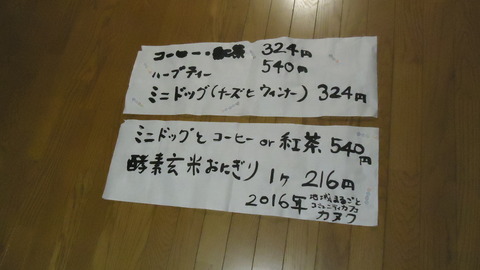 コーヒー・紅茶 324円
ハーブティー 540円
ミニドッグ(チーズとウィンナー) 324円
ミニドッグとコーヒーor紅茶 540円
酵素玄米おにぎり 1ケ 216円
2016年 地球まるごと
コミュニティカフェ
カヌワ